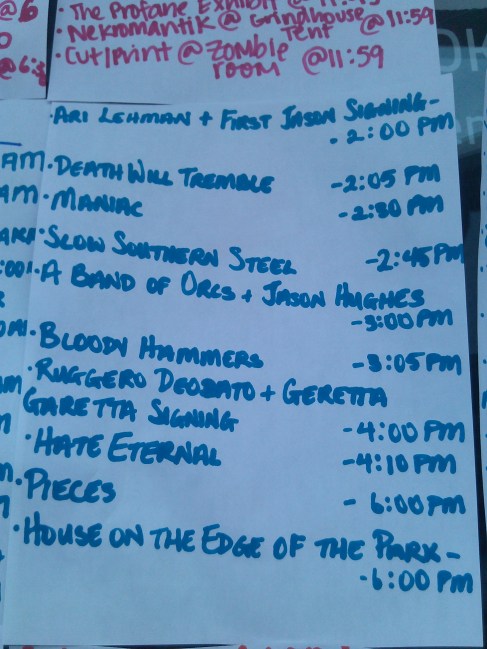 @6
@6:3
· The Profane Exhibit @ 11:45
· Nekromantik @ Grindhouse
Tent @ 11:59
· Cut/Print @ Zombie
room @ 11:59
· ARI LEHMAN + FIRST JASON SIGNING -
- 2:00 PM
AM · DEATH WILL TREMBLE - 2:05 PM
AM · MANIAC - 2:30 PM
· SLOW SOUTHERN STEEL - 2:45 PM
· A BAND OF ORCS + JASON HUGHES
- 3:00 PM
· BLOODY HAMMERS - 3:05 PM
· RUGGERO DEODATO + GERETTA
GARETTA SIGNING - 4:00 PM
· HATE ETERNAL - 4:10 PM
· PIECES - 6:00 PM
· HOUSE ON THE EDGE OF THE PARK -
- 6:00 PM